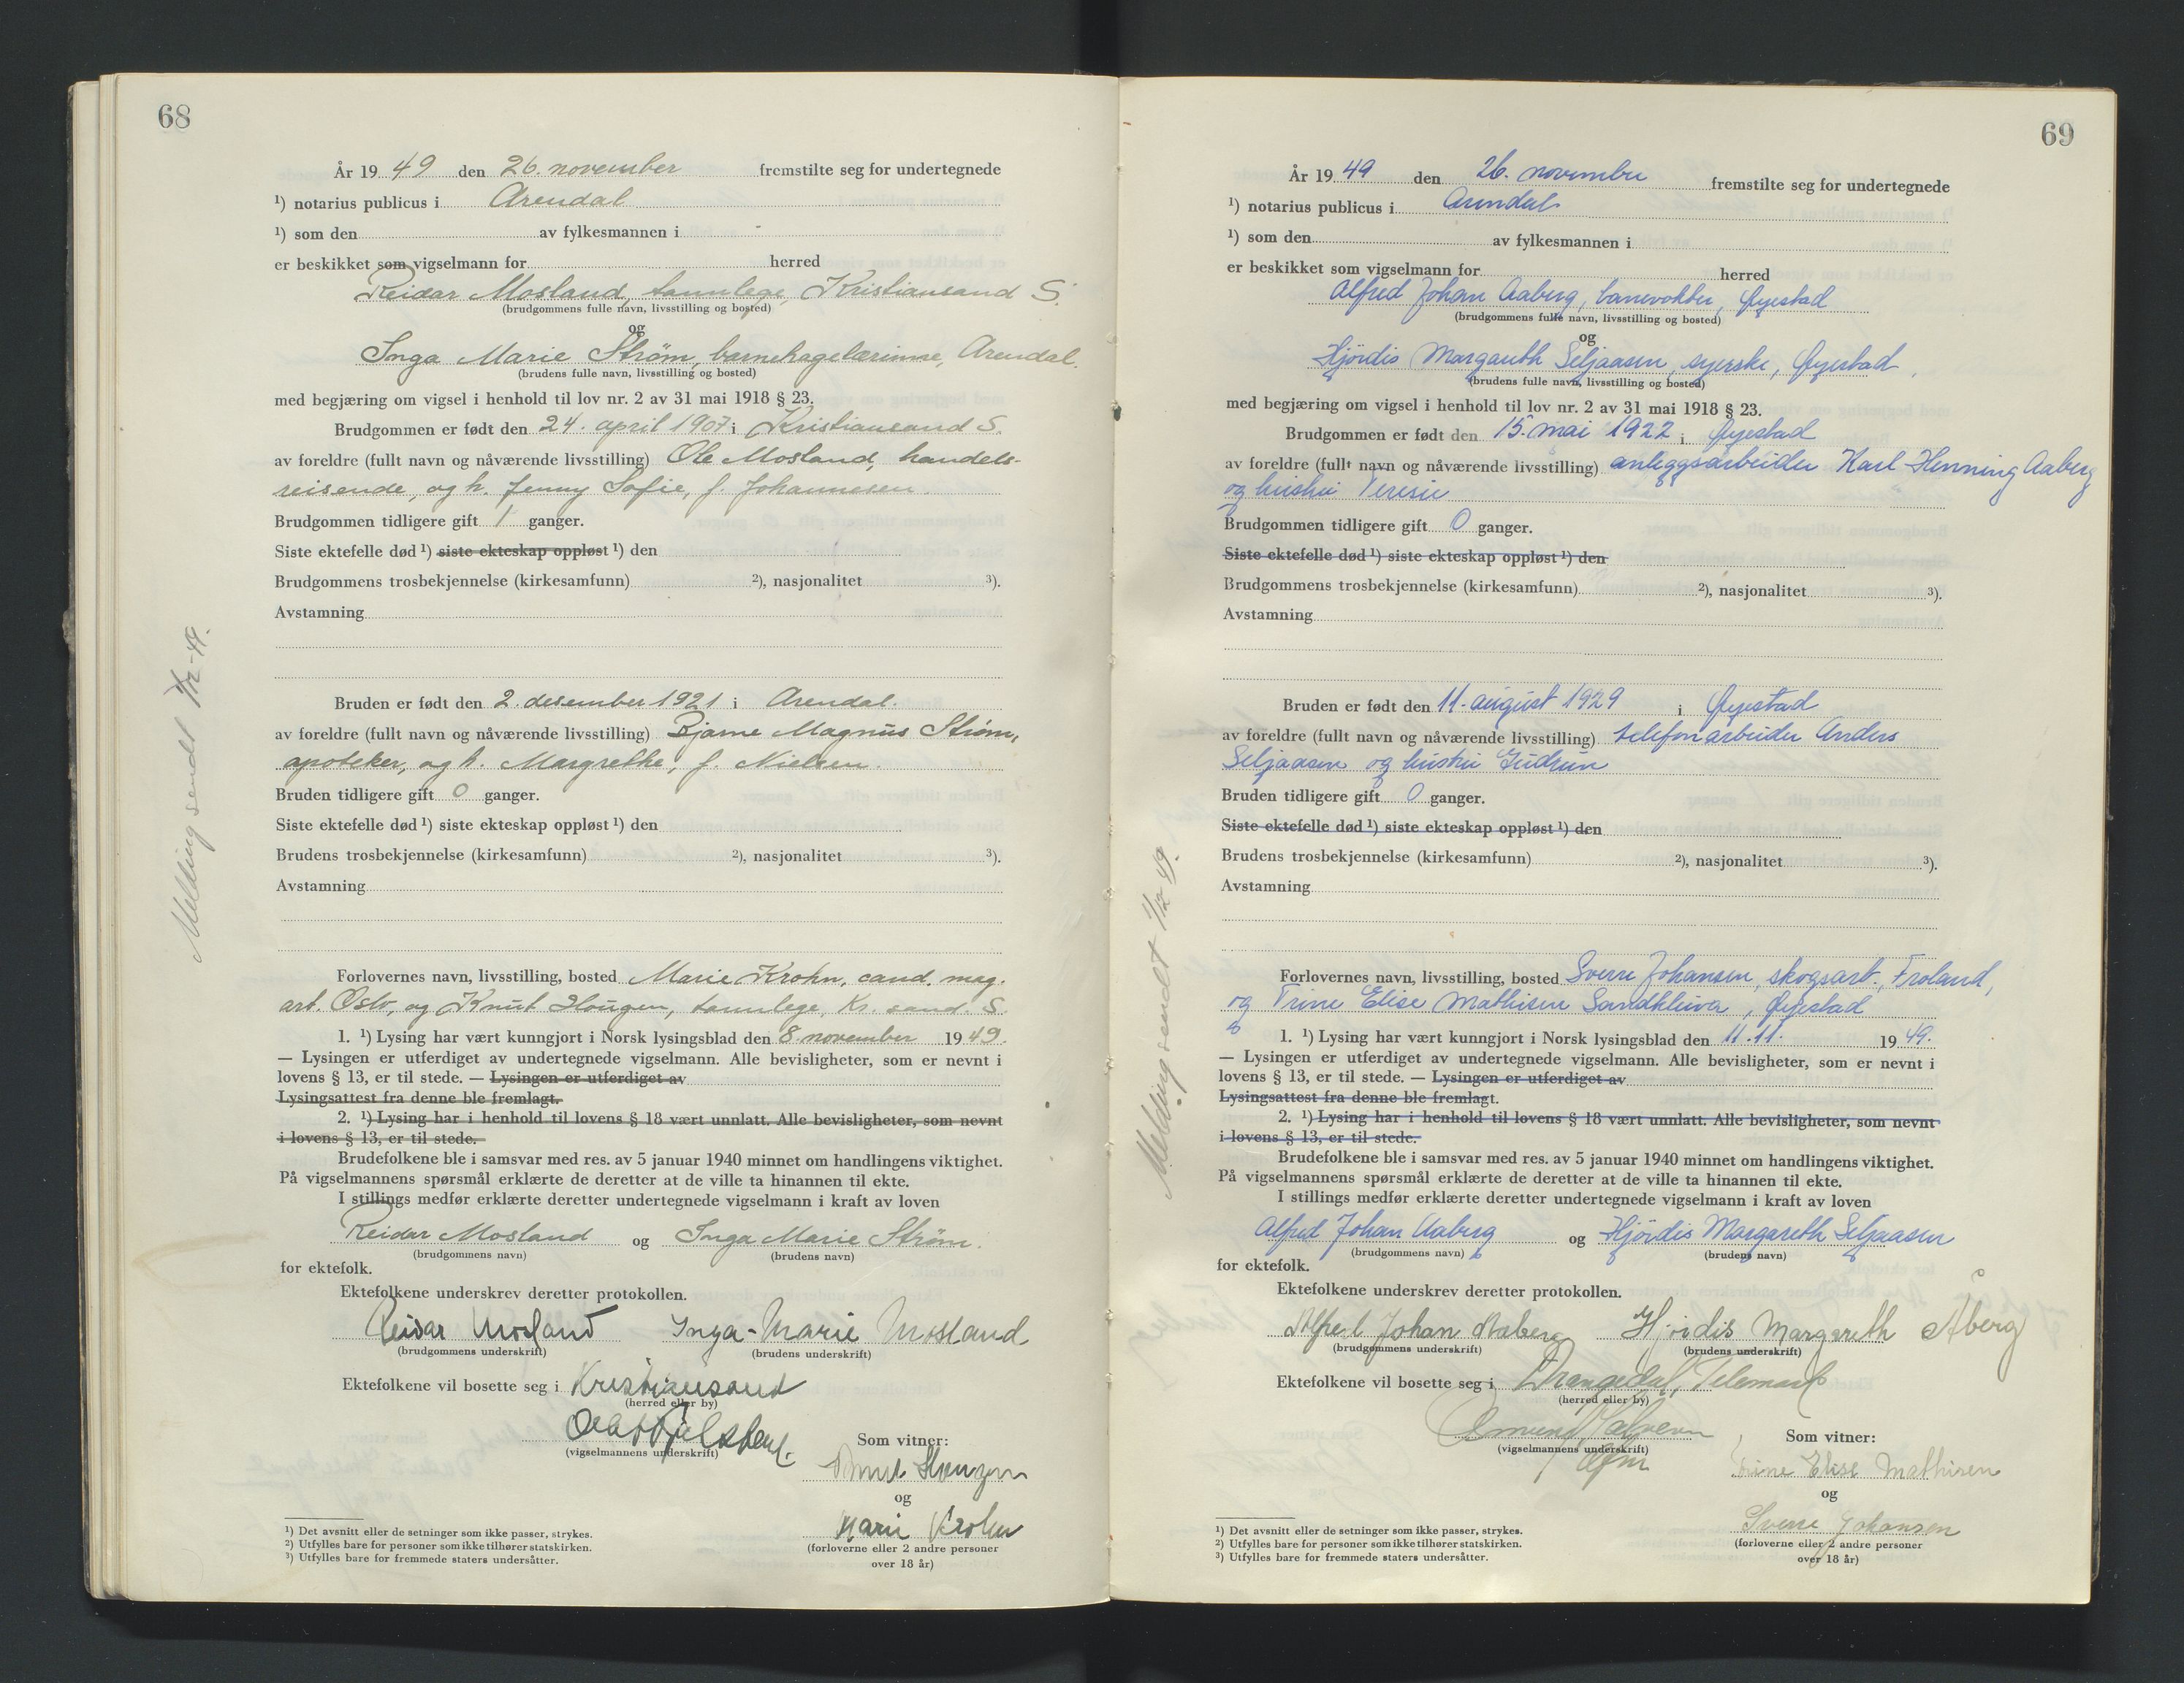 68
År 1949 den 26. november fremstilte seg for undertegnede
¹) notarius publicus i Arendal
¹) som den av fylkesmannen i
er beskikket som vigselmann for herred
Reidar Mosland, tannlege, Kristiansand S.
(brudgommens fulle navn, livsstilling og bosted)
og
Inga Marie Strøm, barnehagelærinne, Arendal.
(brudens fulle navn, livsstilling og bosted)
med begjæring om vigsel i henhold til lov nr. 2 av 31 mai 1918 § 23.
Brudgommen er født den 24. april 1907 i Kristiansand S.
av foreldre (fullt navn og nåværende livsstilling) Ole Mosland, handels-
reisende, og h. Jenny Sofie, f. Johannesen.
Brudgommen tidligere gift 1 ganger.
Siste ektefelle død ¹) siste ekteskap oppløst ¹) den
Brudgommens trosbekjennelse (kirkesamfunn) ²), nasjonalitet ³).
Avstamning
Bruden er født den 2. desember 1921 i Arendal.
av foreldre (fullt navn og nåværende livsstilling) Bjarne Magnus Strøm,
apoteker, og h. Margrethe, f. Nielsen.
Bruden tidligere gift 0 ganger.
Siste ektefelle død ¹) siste ekteskap oppløst ¹) den
Brudens trosbekjennelse (kirkesamfunn) ²), nasjonalitet ³).
Avstamning
Forlovernes navn, livsstilling, bosted Marie Krohn, cand. mag.
art. Oslo, og Knut Hougen, tannlege, Kr. sand. S.
1. ¹) Lysing har vært kunngjort i Norsk lysingsblad den 8. november 1949.
— Lysingen er utferdiget av undertegnede vigselmann. Alle bevisligheter, som er nevnt i
lovens § 13, er til stede. — Lysingen er utferdiget av
Lysingsattest fra denne ble fremlagt.
2. ¹) Lysing har i henhold til lovens § 18 vært unnlatt. Alle bevisligheter, som nevnt
i lovens § 13, er til stede.
Brudefolkene ble i samsvar med res. av 5 januar 1940 minnet om handlingens viktighet.
På vigselmannens spørsmål erklærte de deretter at de ville ta hinannen til ekte.
I stillings medfør erklærte deretter undertegnede vigselmann i kraft av loven
Reidar Mosland og Inga Marie Strøm.
(brudgommens navn) (brudens navn)
for ektefolk.
Ektefolkene underskrev deretter protokollen.
Reidar Mosland Inga-Marie Mosland
(brudgommens underskrift) (brudens underskrift)
Ektefolkene vil bosette seg i Kristiansand
(herred eller by)
(vigselmannens underskrift)
Som vitner:
Knut Hougen
og
Marie Krohn
(forloverne eller 2 andre personer
over 18 år)
¹) Det avsnitt eller de setninger som ikke passer, strykes.
²) Utfylles bare for personer som ikke tilhører statskirken.
³) Utfylles bare for fremmede staters undersåtter.
Melding sendt 1/12-49.
69
År 1949 den 26. november fremstilte seg for undertegnede
¹) notarius publicus i Arendal
¹) som den av fylkesmannen i
er beskikket som vigselmann for herred
Alfred Johan Aaberg, banevokter, Øyestad
(brudgommens fulle navn, livsstilling og bosted)
og
Hjørdis Margareth Seljaasen, syerske, Øyestad,
(brudens fulle navn, livsstilling og bosted)
med begjæring om vigsel i henhold til lov nr. 2 av 31 mai 1918 § 23.
Brudgommen er født den 15. mai 1922 i Øyestad
av foreldre (fullt navn og nåværende livsstilling) anleggsarbeider Karl Henning Aaberg
og hustru Teresie
Brudgommen tidligere gift 0 ganger.
Siste ektefelle død ¹) siste ekteskap oppløst ¹) den
Brudgommens trosbekjennelse (kirkesamfunn) ²), nasjonalitet ³).
Avstamning
Bruden er født den 11. august 1929 i Øyestad
av foreldre (fullt navn og nåværende livsstilling) telefonarbeider Anders
Seljaasen og hustru Gudrun
Bruden tidligere gift 0 ganger.
Siste ektefelle død ¹) siste ekteskap oppløst ¹) den
Brudens trosbekjennelse (kirkesamfunn) ²), nasjonalitet ³).
Avstamning
Forlovernes navn, livsstilling, bosted Sverre Johansen, skogsarb., Froland,
og Trine Elise Mathisen Sandkleiva, Øyestad
1. ¹) Lysing har vært kunngjort i Norsk lysingsblad den 11.11. 1949.
— Lysingen er utferdiget av undertegnede vigselmann. Alle bevisligheter, som er nevnt i
lovens § 13, er til stede. — Lysingen er utferdiget av
Lysingsattest fra denne ble fremlagt.
2. ¹) Lysing har i henhold til lovens § 18 vært unnlatt. Alle bevisligheter, som nevnt
i lovens § 13, er til stede.
Brudefolkene ble i samsvar med res. av 5 januar 1940 minnet om handlingens viktighet.
På vigselmannens spørsmål erklærte de deretter at de ville ta hinannen til ekte.
I stillings medfør erklærte deretter undertegnede vigselmann i kraft av loven
Alfred Johan Aaberg og Hjørdis Margareth Seljaasen
(brudgommens navn) (brudens navn)
for ektefolk.
Ektefolkene underskrev deretter protokollen.
Alfred Johan Aaberg Hjørdis Margareth Åberg
(brudgommens underskrift) (brudens underskrift)
Ektefolkene vil bosette seg i Drangedal, Telemark
(herred eller by)
(vigselmannens underskrift)
Som vitner:
Trine Elise Mathisen
og
Sverre Johansen
(forloverne eller 2 andre personer
over 18 år)
¹) Det avsnitt eller de setninger som ikke passer, strykes.
²) Utfylles bare for personer som ikke tilhører statskirken.
³) Utfylles bare for fremmede staters undersåtter.
Melding sendt 1/12 49.